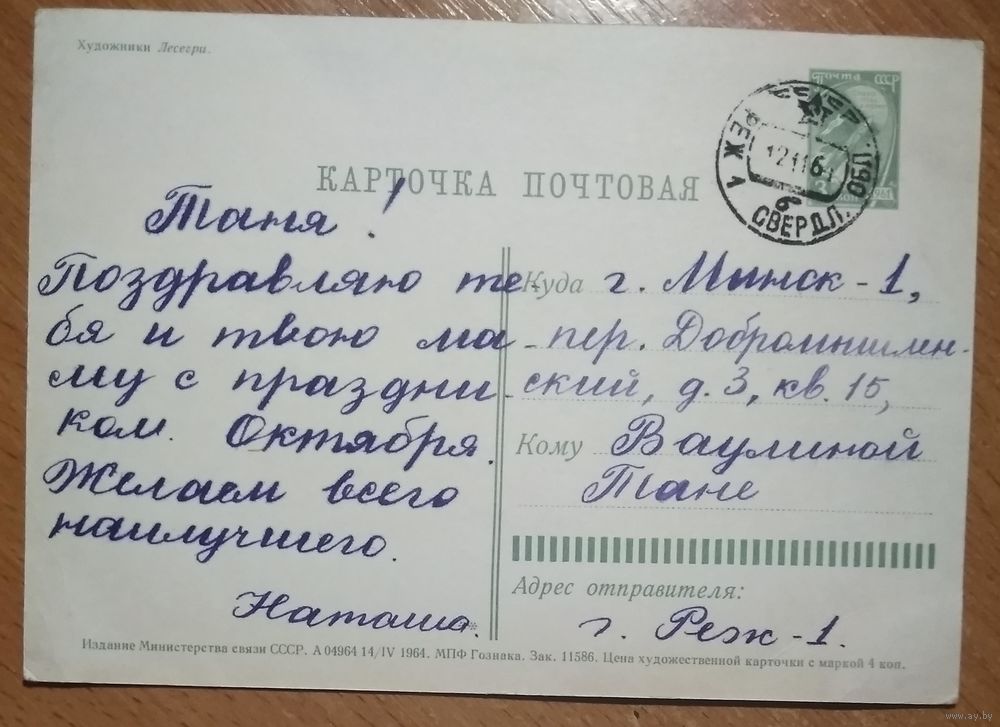 Художники Лесегри.
Почта СССР
1961
РЕЖ 1
СВЕРДЛ. ОБЛ
б
КАРТОЧКА ПОЧТОВАЯ
Таня!
Поздравляю те-
бя и твою ма-
му с праздни-
ком Октября.
Желаем всего
наилучшего.
Наташа.
Куда г. Минск-1,
пер. Добромышлен-
ский, д. 3, кв. 15,
Кому Ваулиной
Тане
Адрес отправителя:
г. Реж-1.
Издание Министерства связи СССР. А 04964 14/IV 1964. МПФ Гознака. Зак. 11586. Цена художественной карточки с маркой 4 коп.
www.ay.by